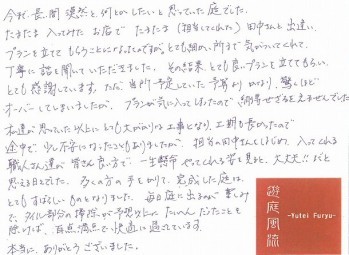 今まで、長い間 漠然と、何とかしたいと思っていた庭でした。
たまたま 入ってみた お店で たまたま（担当してくれた）田中さんと出逢い、
プランを立てて もらうことになったのですが、とても細かい所まで気がついてくれて、
丁寧に話を聞いていただきました。その結果、とても良いプランを立ててもらい、
とても感謝しています。ただ 当所予定していた予算より かなり、驚くほど
オーバーしてしまいましたが、プランが気に入ってしまったので 納得せざるをえませんでした。
私達が思っていた以上に とても大がかりな工事となり、工期も長かったので
途中で 少し不安になったこともありましたが、担当の田中さんをはじめ 入ってくれる
職人さん達が 皆さん良い方で 一生懸命 やってくれる姿を見ると、大丈夫!! だと
思える日々でした。多くの方の手をかりて、完成した庭は、
とてもすばらしいものとなりました。毎日庭に出るのが楽しみ
で、タイル部分の掃除が予想以上に たいへんだったことを
除けば、百点満点で、快適に過ごしています。
本当に、ありがとうございました。
遊庭風流
-Yutei Furyu-